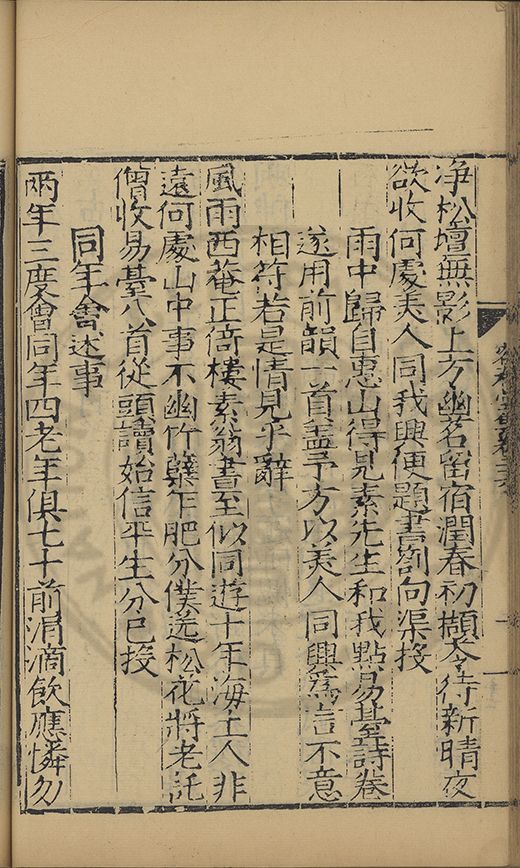 净松壇無影上方幽茗留宿潤春初擷琴待新晴夜
欲收何處美人同我興便題書劄句渠投
雨中歸自惠山得見素先生和我點易臺詩卷
遂用前韻一首盖予方以美人同興爲言不意
相符若是情見乎辭
風雨西菴正倚樓素翁書至似同遊十年海上人非
遠何處山中事不幽竹蘖乍肥分僕送松花將老託
僧收易臺八首從頭讀始信平生分已投
同年會述事
兩年三度會同年四老年俱七十前涓滴飲應憐勿